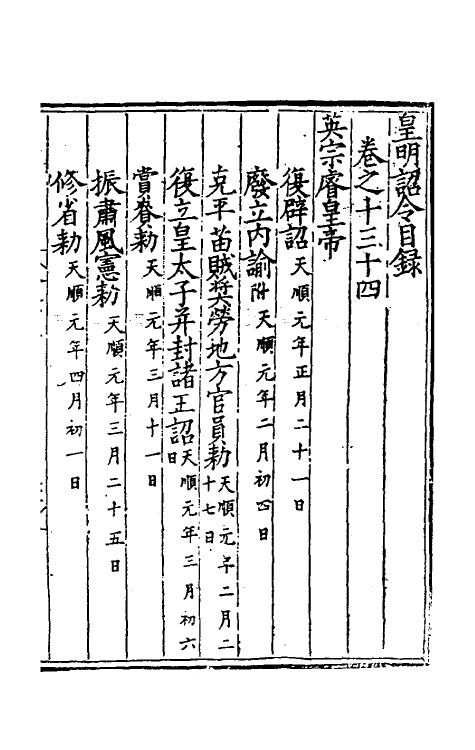 皇明詔令目録
卷之十三十四
英宗睿皇帝
復辟詔天順元年正月二十一日
廢立内諭附天順元年二月初四日
克平苗賊奬勞地方官員勑天順元年二月二十七日
復立皇太子并封諸王詔天順元年三月初六日
賞眷勑天順元年三月十一日
振肅風憲勑天順元年三月二十五日
修省勑天順元年四月初一日